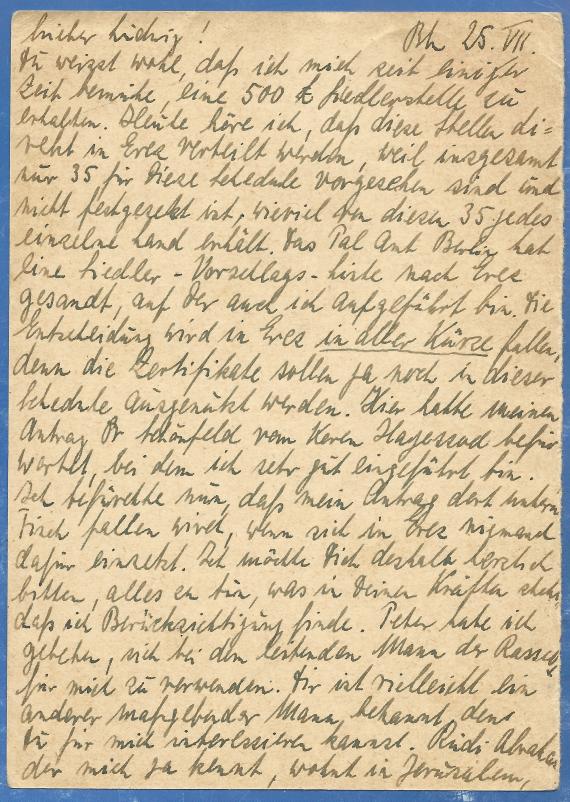 Lieber Ludwig! Bln 25. VII.
Du weisst wohl, daß ich mich seit einiger
Zeit bemühe, eine 500 £ Siedlerstelle zu
erhalten. Heute höre ich, daß diese Stellen di=
rekt in Erez verteilt werden, weil insgesamt
nur 35 für diese Schedule vorgesehen sind und
nicht festgesetzt ist, wieviel von diesen 35 jedes
einzelne Land erhält. Das Pal Amt Berlin hat
eine Siedler-Vorschlags-Liste nach Erez
gesandt, auf der auch ich aufgeführt bin. Die
Entscheidung wird in Erez in aller Kürze fallen,
denn die Zertifikate sollen ja noch in dieser
Schedule ausgenützt werden. Hier hatte meinen
Antrag Dr Schönfeld vom Keren Hagessod befür
wortet, bei dem ich sehr gut eingeführt bin.
Ich befürchte nun, daß mein Antrag dort untern
Tisch fallen wird, wenn sich in Erez niemand
dafür einsetzt. Ich möchte Dich deshalb herzlich
bitten, alles zu tun, was in Deinen Kräften steht,
daß ich Berücksichtigung finde. Peter habe ich
gebeten, sich bei dem leitenden Mann der
für mich zu verwenden. Dir ist vielleicht ein
anderer maßgebender Mann bekannt, den
Du für mich interessieren kannst. Rudi Abraham
der mich ja kennt, wohnt in Jerusalem,